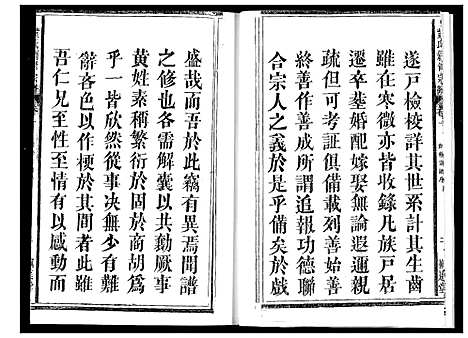 遂戶檢校詳其世系計其生齒
雖在寒微亦皆收錄凡族戶居
遷卒葬婚配嫁娶無論遐邇親
疏但可考証俱備載列善始善
終善作善成所謂追報功德聯
合宗人之義於是乎備矣於戲
盛哉而吾於此竊有異焉聞譜
之修也各需解囊以共勷厥事
黃姓素稱繁衍於岡於商胡為
乎一皆欣然從事决無少有難
辭吝色以作梗於其間者此雖
吾仁兄至性至情有以感動而